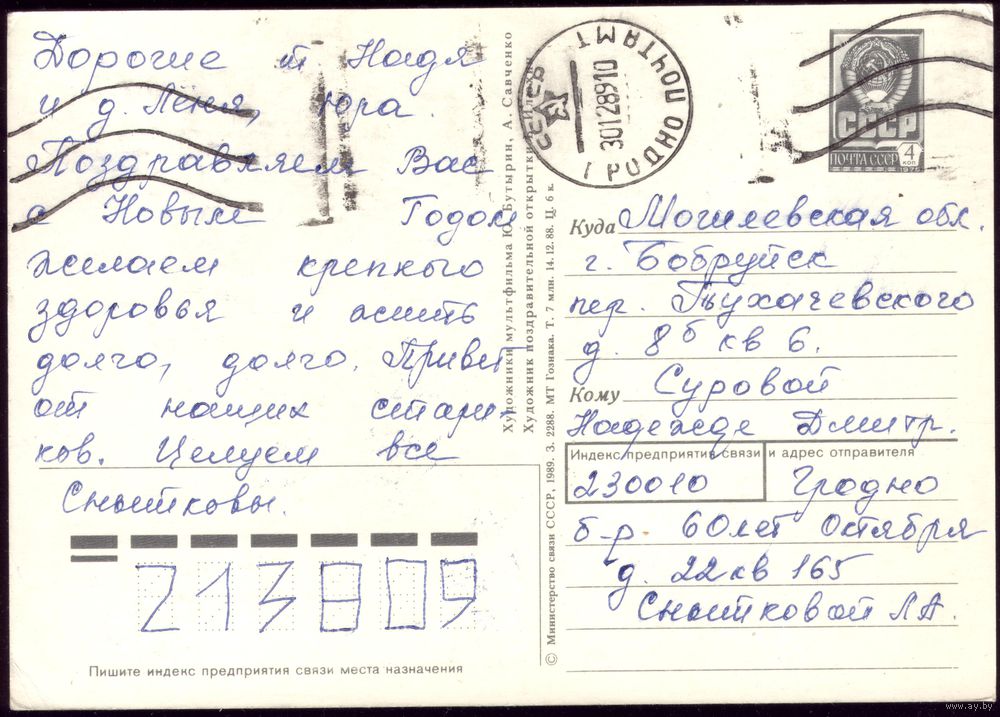 Дорогие т Надя
и д. Лёня, Юра.
Поздравляем Вас
с Новым Годом
желаем крепкого
здоровья и жить
долго, долго. Привет
от наших стари-
ков. Целуем все
Снытковы.
213809
Пишите индекс предприятия связи места назначения
Художники мультфильма Ю. Бутырин, А. Савченко
Художник поздравительной открытки
© Министерство связи СССР, 1989. З. 2288. МТ Гознака. Т. 7 млн. 14.12.88. Ц. 6 к.
СССР
ГРОДНО ПОЧТАМТ
30128910
СССР
ПОЧТА СССР 4 КОП
Куда Могилевская обл.
г. Бобруйск
пер. Тухачевского
д. 8б кв 6.
Кому Суровой
Надежде Дмитр.
Индекс предприятия связи и адрес отправителя
230010 Гродно
б-р. 60лет Октября
д. 22 кв 165
Снытковой Л А.
www.ay.by